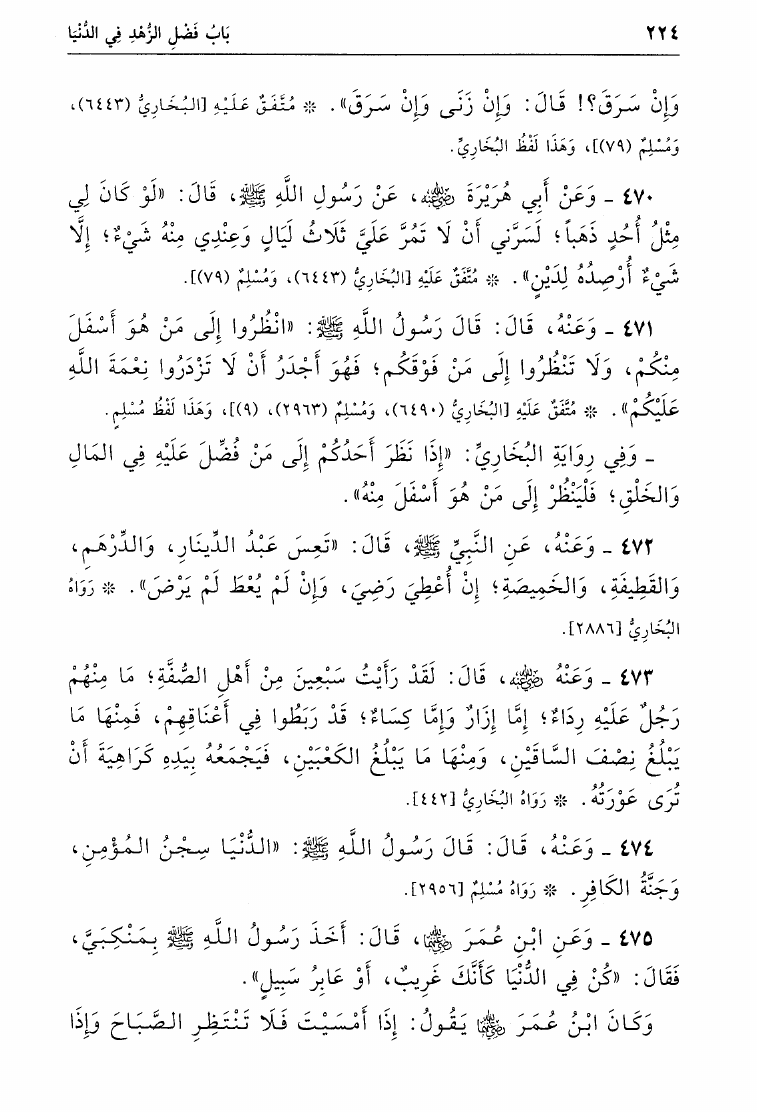 ٢٢٤ بَابُ فَضْلِ الزُّهْدِ فِي الدُّنْيَا
وَإِنْ سَرَقَ؟! قَالَ: وَإِنْ زَنَى وَإِنْ سَرَقَ». * مُتَّفَقٌ عَلَيْهِ [البُخَارِيُّ (٦٤٤٣)،
وَمُسْلِمٌ (٧٩)]، وَهَذَا لَفْظُ البُخَارِيِّ.
٤٧٠ ـ وَعَنْ أَبِي هُرَيْرَةَ رضي الله عنه، عَنْ رَسُولِ اللَّهِ ﷺ، قَالَ: «لَوْ كَانَ لِي
مِثْلُ أُحُدٍ ذَهَباً؛ لَسَرَّنِي أَنْ لَا تَمُرَّ عَلَيَّ ثَلَاثُ لَيَالٍ وَعِنْدِي مِنْهُ شَيْءٌ؛ إِلَّا
شَيْءٌ أُرْصِدُهُ لِدَيْنٍ». * مُتَّفَقٌ عَلَيْهِ [البُخَارِيُّ (٦٤٤٣)، وَمُسْلِمٌ (٧٩)].
٤٧١ ـ وَعَنْهُ، قَالَ: قَالَ رَسُولُ اللَّهِ ﷺ: «انْظُرُوا إِلَى مَنْ هُوَ أَسْفَلَ
مِنْكُمْ، وَلَا تَنْظُرُوا إِلَى مَنْ فَوْقَكُم؛ فَهُوَ أَجْدَرُ أَنْ لَا تَزْدَرُوا نِعْمَةَ اللَّهِ
عَلَيْكُمْ». * مُتَّفَقٌ عَلَيْهِ [البُخَارِيُّ (٦٤٩٠)، وَمُسْلِمٌ (٢٩٦٣)، (٩)]، وَهَذَا لَفْظُ مُسْلِمٍ.
ـ وَفِي رِوَايَةِ البُخَارِيِّ: «إِذَا نَظَرَ أَحَدُكُمْ إِلَى مَنْ فُضِّلَ عَلَيْهِ فِي المَالِ
وَالخَلْقِ؛ فَلْيَنْظُرْ إِلَى مَنْ هُوَ أَسْفَلَ مِنْهُ».
٤٧٢ ـ وَعَنْهُ، عَنِ النَّبِيِّ ﷺ، قَالَ: «تَعِسَ عَبْدُ الدِّينَارِ، وَالدِّرْهَمِ،
وَالقَطِيفَةِ، وَالخَمِيصَةِ؛ إِنْ أُعْطِيَ رَضِيَ، وَإِنْ لَمْ يُعْطَ لَمْ يَرْضَ». * رَوَاهُ
البُخَارِيُّ [٢٨٨٦].
٤٧٣ ـ وَعَنْهُ رضي الله عنه، قَالَ: لَقَدْ رَأَيْتُ سَبْعِينَ مِنْ أَهْلِ الصُّفَّةِ؛ مَا مِنْهُمْ
رَجُلٌ عَلَيْهِ رِدَاءٌ؛ إِمَّا إِزَارٌ وَإِمَّا كِسَاءٌ؛ قَدْ رَبَطُوا فِي أَعْنَاقِهِمْ، فَمِنْهَا مَا
يَبْلُغُ نِصْفَ السَّاقَيْنِ، وَمِنْهَا مَا يَبْلُغُ الكَعْبَيْنِ، فَيَجْمَعُهُ بِيَدِهِ كَرَاهِيَةَ أَنْ
تُرَى عَوْرَتُهُ. * رَوَاهُ البُخَارِيُّ [٤٤٢].
٤٧٤ ـ وَعَنْهُ، قَالَ: قَالَ رَسُولُ اللَّهِ ﷺ: «الدُّنْيَا سِجْنُ المُؤْمِنِ،
وَجَنَّةُ الكَافِرِ. * رَوَاهُ مُسْلِمٌ [٢٩٥٦].
٤٧٥ ـ وَعَنِ ابْنِ عُمَرَ رضي الله عنهما، قَالَ: أَخَذَ رَسُولُ اللَّهِ ﷺ بِمَنْكِبَيَّ،
فَقَالَ: «كُنْ فِي الدُّنْيَا كَأَنَّكَ غَرِيبٌ، أَوْ عَابِرُ سَبِيلٍ».
وَكَانَ ابْنُ عُمَرَ رضي الله عنهما يَقُولُ: إِذَا أَمْسَيْتَ فَلَا تَنْتَظِرِ الصَّبَاحَ وَإِذَا